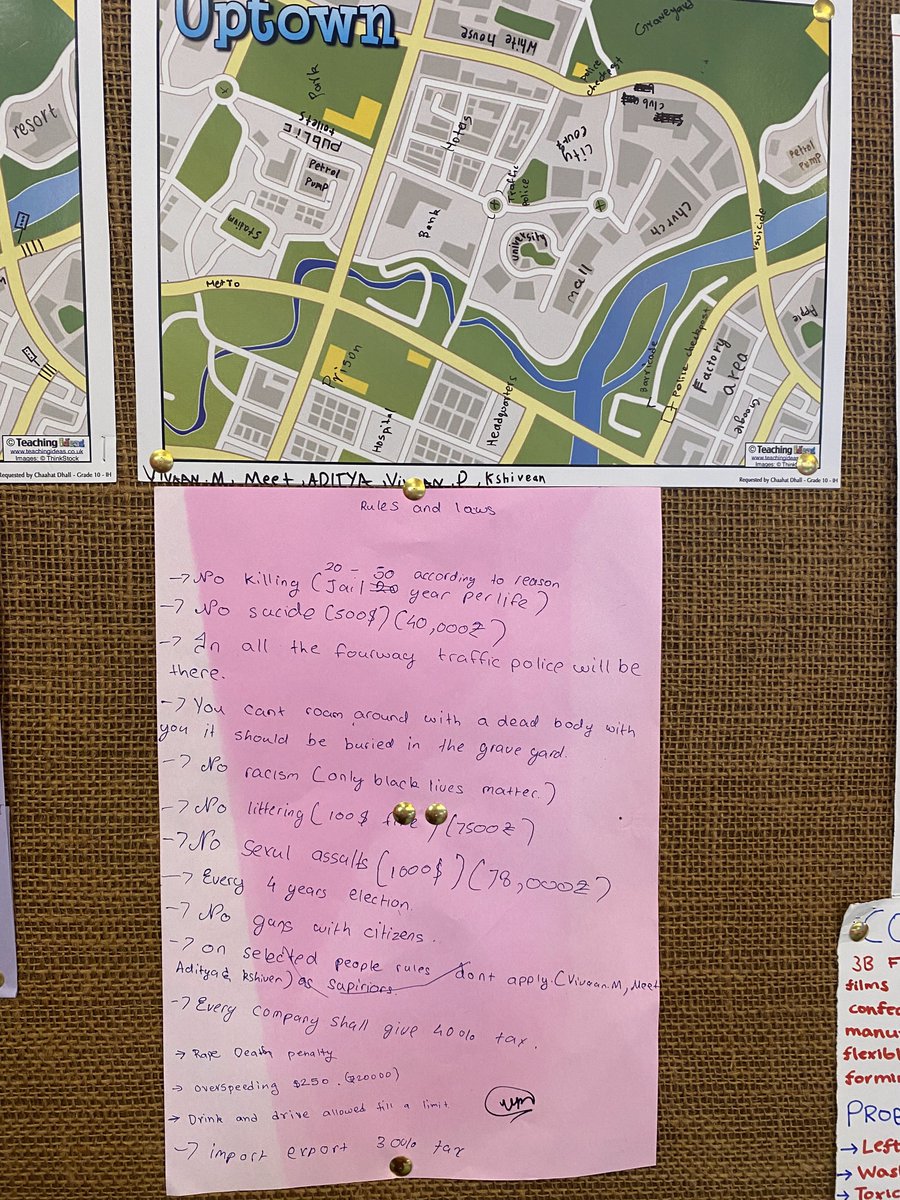 Uptown
resort
White house
Graveyard
Police checkpost
Club
Park
Public toilets
Petrol Pump
Hotes
City Court
Traffic Police
Petrol Pump
Stadium
Bank
university
Church
suicide
mall
Metro
Prison
Barricade
Police checkpost
Factory area
Apple
Google
Hospital
Headquarters
© Teaching Ideas
www.teachingideas.co.uk
Images: © ThinkStock
Requested by Chaahat Dhall - Grade 10 - IH
© Teaching
www.teachingideas
Images: © Think
Requested by Chaahat Dhall - Grade 10 - IH
VIVAAN.M, Meet, ADITYA, Vivaan.P, Kshivean
Rules and laws
20 - 50 according to reason
→ No killing (Jail 20 year per life)
→ No sucide (500$) (40,000₹)
→ In all the fourway traffic police will be
there.
→ You cant roam around with a dead body with
you it should be buried in the grave yard.
→ No racism (only black lives matter.)
→ No littering (100$ fine) (7500₹)
→ No sexul assalts (1000$) (78,000₹)
→ Every 4 years election.
→ No guns with citizens.
→ on selected people rules dont apply. (Vivaan.M, Meet
Aditya & kshiven) as sapiriors.
→ Every company shall give 40% tax.
→ Rape Death penalty
→ overspeeding $250. (₹20000)
→ Drink and drive allowed till a limit
→ import export 30% tax
CO
3B F
films
confec
manu
flexibl
formin
PROB
→ Left
→ Was
→ Toxic